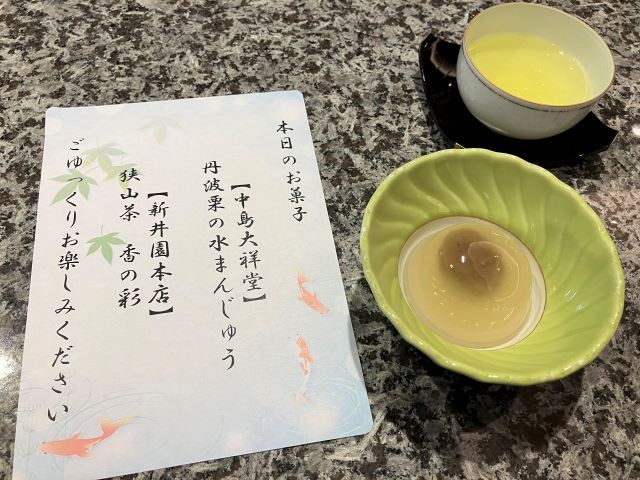 本日のお菓子
【中島大祥堂】
丹波栗の水まんじゅう
【新井園本店】
狭山茶　香の彩
ごゆっくりお楽しみください